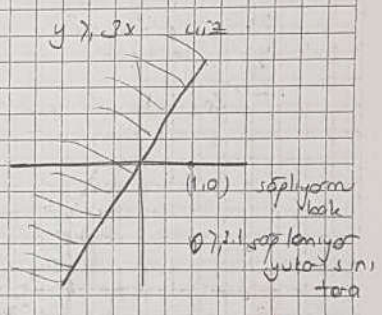 y ≥ 3x çiz
(1,0) sağlıyor mu
bak
0 ≥ 3.1 sağlamıyor
yukarısını
tara